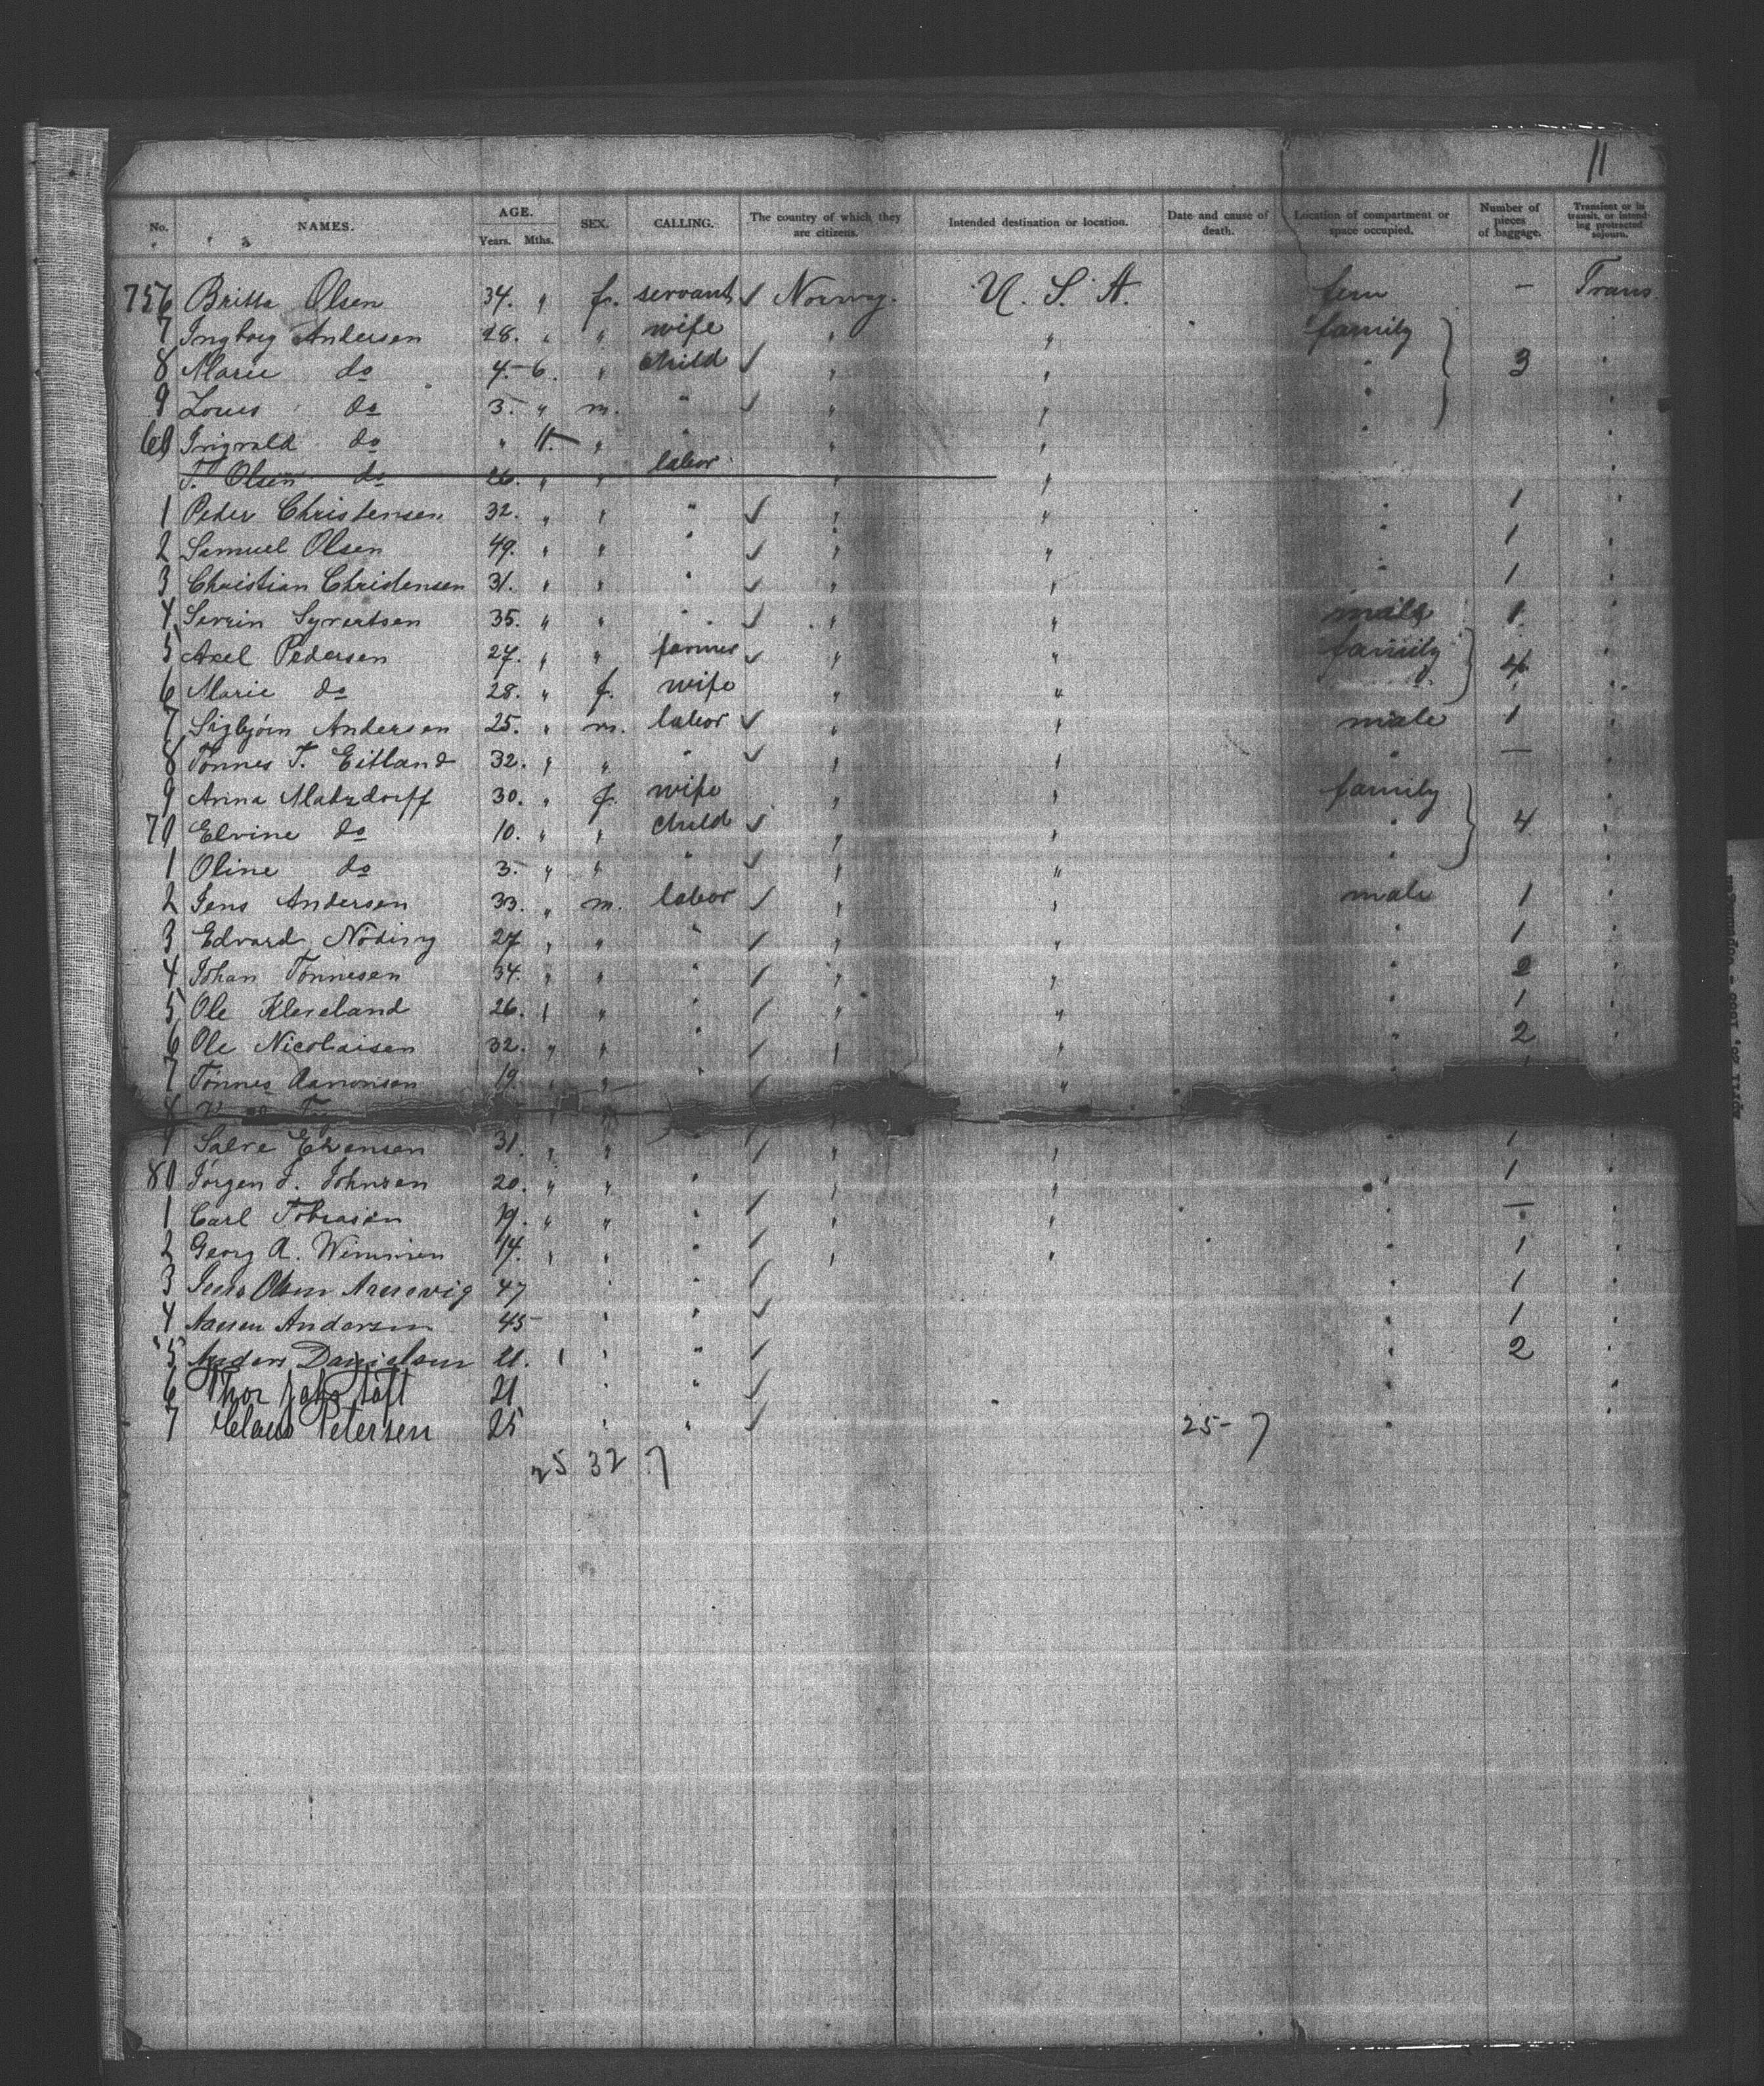 11
No. NAMES. AGE. Years. Mths. SEX. CALLING. The country of which they are citizens. Intended destination or location. Date and cause of death. Location of compartment or space occupied. Number of pieces of baggage. Transient or in transit, or intending protracted sojourn.
756 Britta Olsen 34. " f. servant ✓ Norway. U. S. A. fem — Trans.
7 Ingborg Andersen 28. " " wife " " family "
8 Marie do 4. 6. " child ✓ " " " 3 "
9 Louis do 3. " m. " ✓ " " " "
60 Ingvald do " 11. " " " " " "
T. Olsen do 26. " " labor " " "
1 Peder Christensen 32. " " " ✓ " " " 1 "
2 Samuel Olsen 49. " " " ✓ " " " 1 "
3 Christian Christensen 31. " " " ✓ " " " 1 "
4 Severin Syvertsen 35. " " " ✓ " " male 1 "
5 Axel Pedersen 27. " " farmer ✓ " " family 4 "
6 Marie do 28. " f. wife " " " "
7 Sigbjörn Andersen 25. " m. labor ✓ " " male 1 "
8 Tönnes T. Eitland 32. " " " ✓ " " " — "
9 Anna Matzdorff 30. " f. wife " " family "
70 Elvine do 10. " " child ✓ " " " 4 "
1 Oline do 3. " " " ✓ " " " "
2 Jens Andersen 33. " m. labor ✓ " " male 1 "
3 Edvard Nöding 27 " " " ✓ " " " 1 "
4 Johan Tönnesen 34. " " " ✓ " " " 2 "
5 Ole Kleveland 26. " " " ✓ " " " 1 "
6 Ole Nicolaisen 32. " " " ✓ " " " 2 "
7 Tönnes Aanonsen 19. " " " ✓ " "
8
9 Salve 31. " " " ✓ " " " 1 "
80 Jörgen J. Johnsen 20. " " " " " " 1 "
1 Carl Tobiasen 19. " " " ✓ " " " — "
2 Georg A. 14. " " " ✓ " " " 1 "
3 Jens Olsen 47 " " ✓ " 1 "
4 Andersen 45 " " ✓ " 1 "
5 Anders Danielsen 21. " " " ✓ " 2 "
6 Thor 21 " " ✓ " "
7 Claus Petersen 25 " " ✓ 25 - 7 " "
25 32 7